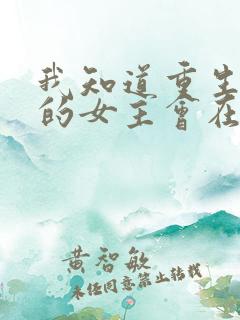 我知道重生
的女主会在
黄智敏
未经同意禁止转载